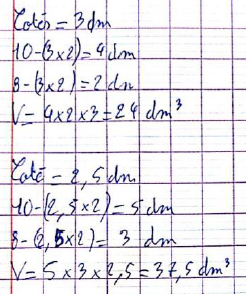 Cotés = 3 dm
10-(3×2)= 4 dm
8-(3×2)= 2 dm
V= 4×2×3=24 dm³
Coté = 2,5 dm
10-(2,5×2)= 5 dm
8-(2,5×2)= 3 dm
V= 5×3×2,5=37,5 dm³